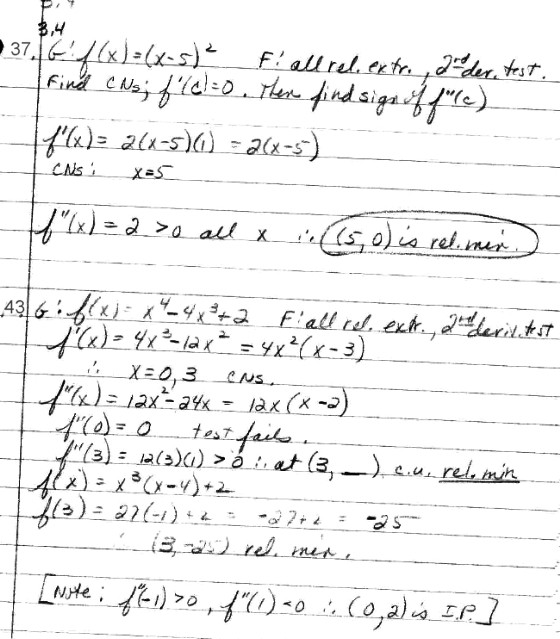 3.4
37. G: f(x)=(x-5)² F: all rel. extr., 2nd der. test.
Find CNs; f'(c)=0. Then find sign of f"(c)
f'(x) = 2(x-5)(1) = 2(x-5)
CNs: x=5
f"(x) = 2 >0 all x ∴ (5,0) is rel. min.
43. G: f(x) = x⁴-4x³+2 F: all rel. extr., 2nd deriv. test
f'(x) = 4x³-12x² = 4x²(x-3)
∴ x=0,3 CNs.
f"(x) = 12x²-24x = 12x(x-2)
f"(0) = 0 test fails.
f"(3) = 12(3)(1) >0 ∴ at (3, __) c.u. rel. min
f(x) = x³(x-4)+2
f(3) = 27(-1)+2 = -27+2 = -25
∴ (3,-25) rel. min.
[Note: f"(-1) >0, f"(1) <0 ∴ (0,2) is I.P.]